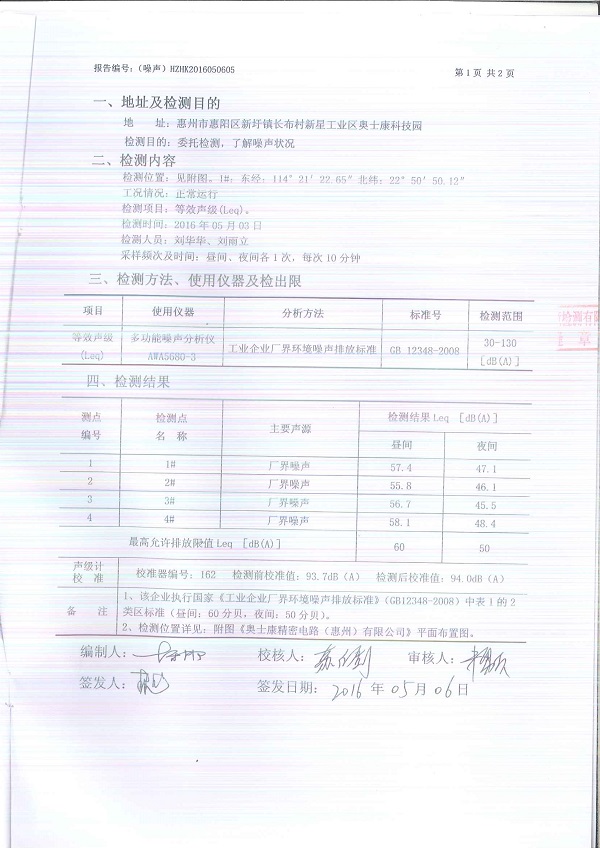 报告编号:(噪声)HZHK2016050605
第1页 共2页
一、地址及检测目的
地 址:惠州市惠阳区新圩镇长布村新星工业区奥士康科技园
检测目的:委托检测,了解噪声状况
二、检测内容
检测位置:见附图。1#:东经:114°21′22.65″北纬:22°50′50.12″
工况情况:正常运行
检测项目:等效声级(Leq)。
检测时间:2016年05月03日
检测人员:刘华华、刘雨立
采样频次及时间:昼间、夜间各1次,每次10分钟
三、检测方法、使用仪器及检出限
项目 使用仪器 分析方法 标准号 检测范围
等效声级 (Leq) 多功能噪声分析仪 AWA5680-3 工业企业厂界环境噪声排放标准 GB 12348-2008 30-130 [dB(A)]
四、检测结果
测点编号 检测点名 称 主要声源 检测结果Leq [dB(A)]
昼间 夜间
1 1# 厂界噪声 57.4 47.1
2 2# 厂界噪声 55.8 46.1
3 3# 厂界噪声 56.7 45.5
4 4# 厂界噪声 58.1 48.4
最高允许排放限值Leq [dB(A)] 60 50
声级计校 准 校准器编号:162 检测前校准值:93.7dB(A) 检测后校准值:94.0dB(A)
备 注 1、该企业执行国家《工业企业厂界环境噪声排放标准》(GB12348-2008)中表1的2
类区标准(昼间:60分贝,夜间:50分贝)。
2、检测位置详见:附图《奥士康精密电路(惠州)有限公司》平面布置图。
编制人: 校核人: 审核人:
签发人: 签发日期: 2016年05月06日
检测有限
章